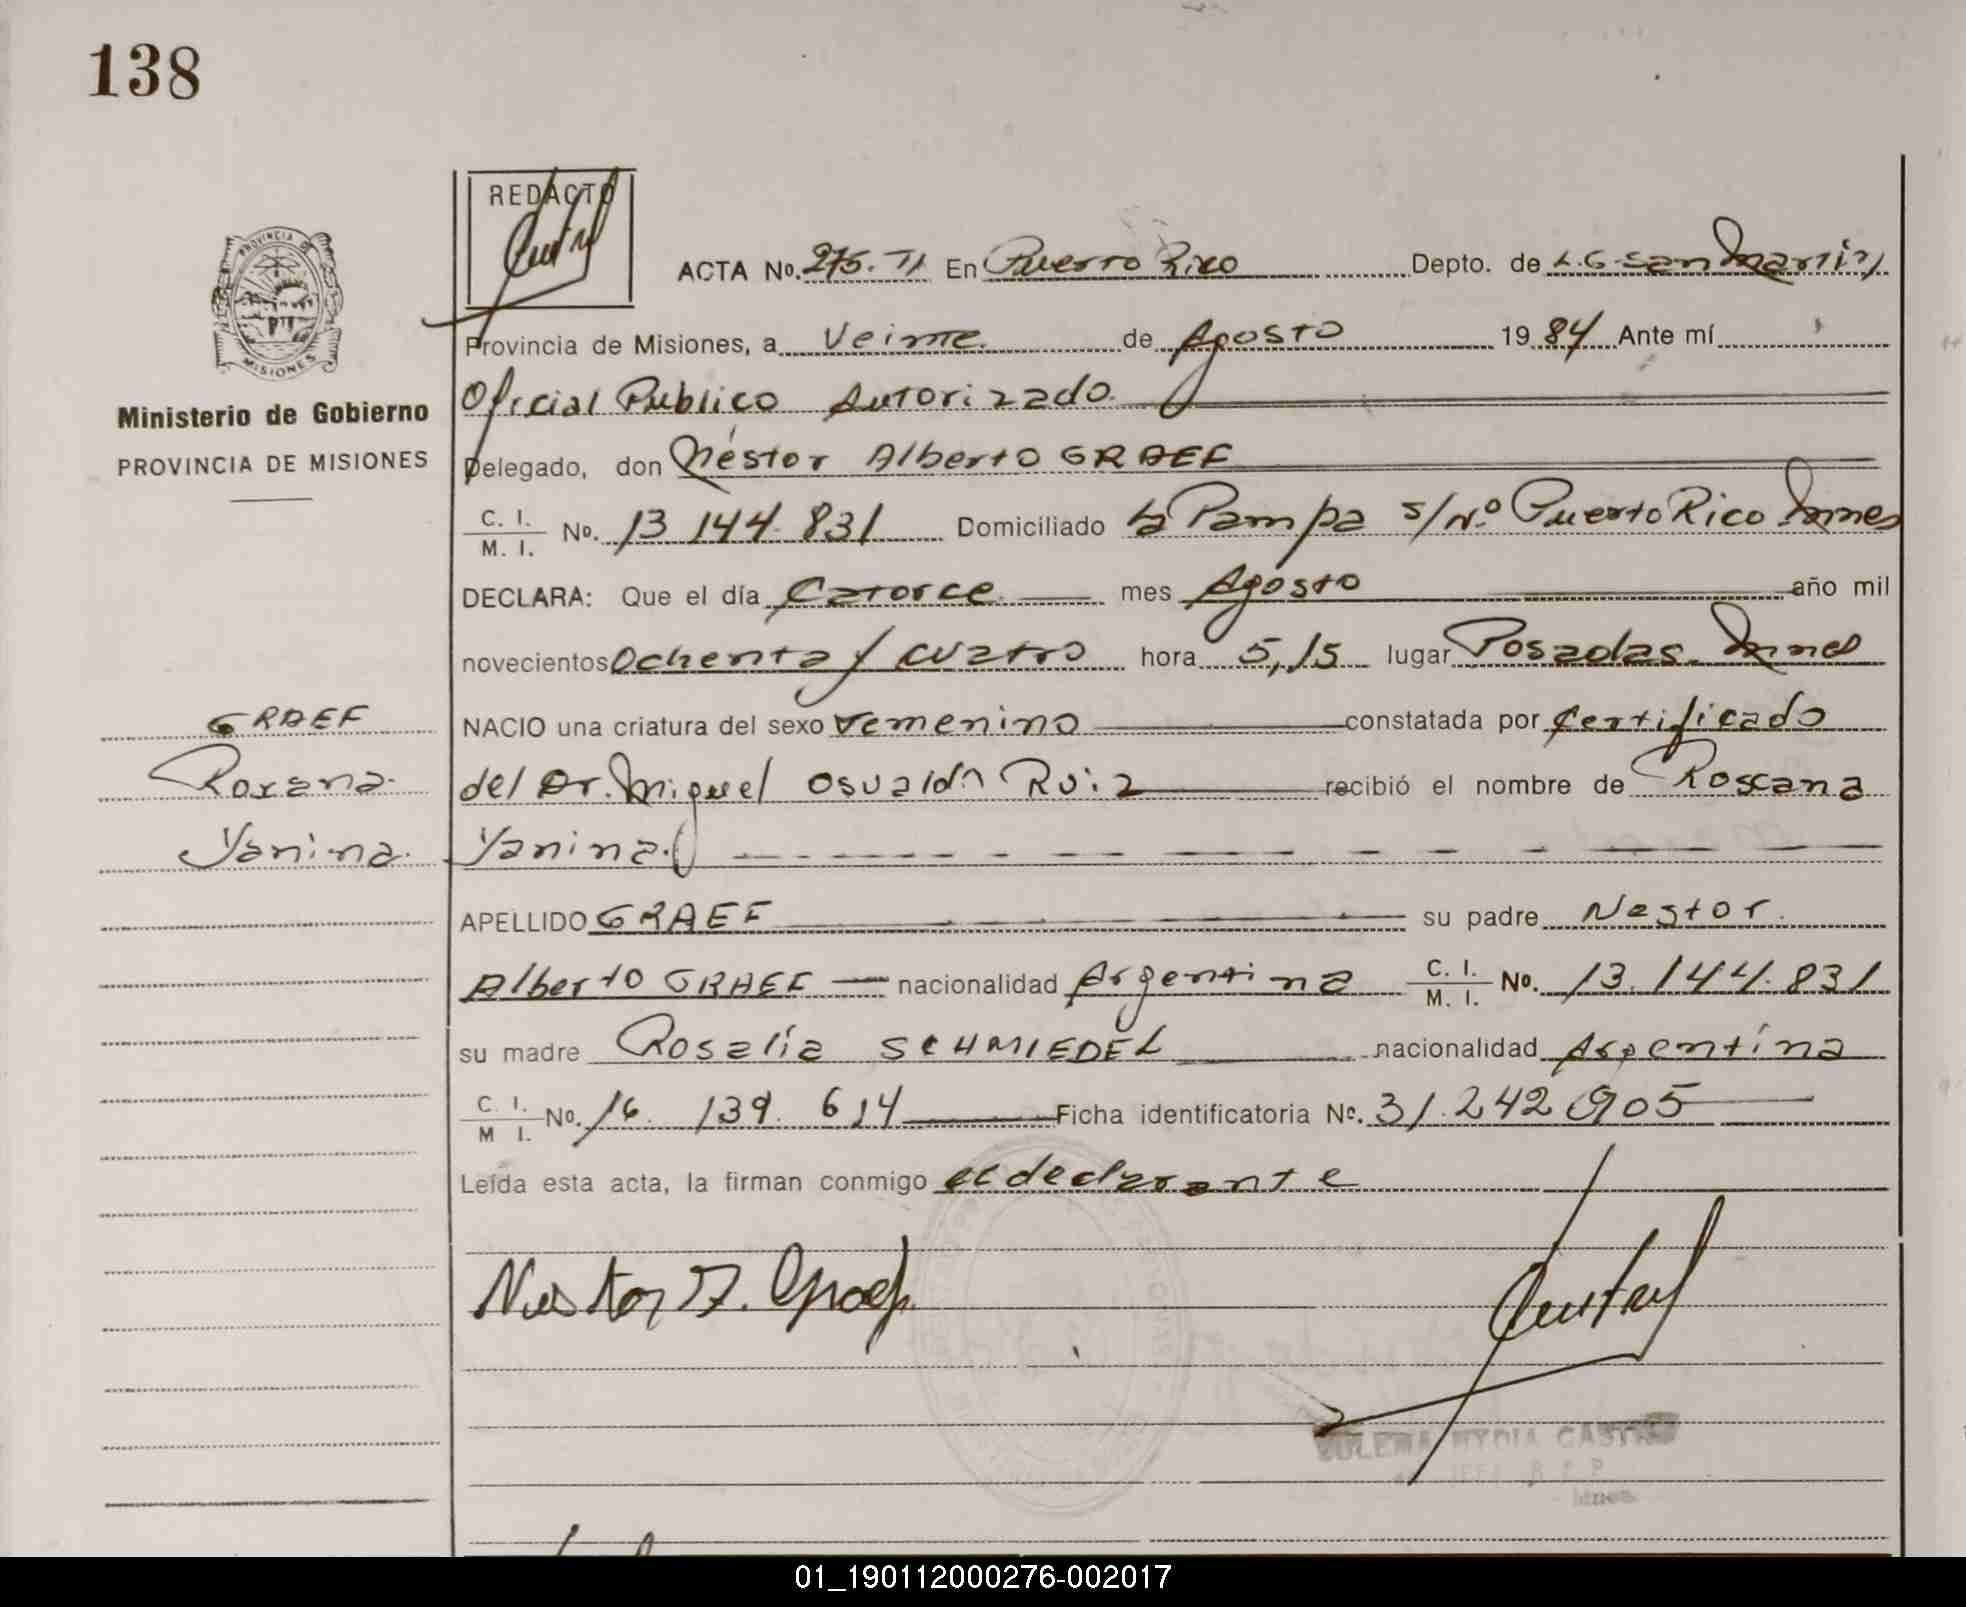 138
REDACTO
ACTA No. 275. TI En Puerto Rico Depto. de L.G. San Martin
PROVINCIA DE
MISIONES
Provincia de Misiones, a Veinte de Agosto 1984 Ante mí
Ministerio de Gobierno
Oficial Publico Autorizado
PROVINCIA DE MISIONES
Delegado, don Néstor Alberto GRAEF
C. I.
M. I. No. 13 144. 831 Domiciliado La Pampa s/Nº Puerto Rico Mnes
DECLARA: Que el día Catorce mes Agosto año mil
novecientos Ochenta y cuatro hora 5,15 lugar Posadas. Mnes
GRAEF
NACIO una criatura del sexo Femenino constatada por Certificado
Roxana
del Dr. Miguel Osvaldo Ruiz recibió el nombre de Roxana
Yanina.
Yanina.
APELLIDO GRAEF su padre Nestor
Alberto GRAEF nacionalidad Argentina C. I.
M. I. No. 13.144.831
su madre Rosalía SCHMIEDEL nacionalidad Argentina
C. I.
M I. No. 16. 139. 614 Ficha identificatoria No. 31.242 905
Leída esta acta, la firman conmigo el declarante
Nestor A. Graef
ZULEMA NYDIA CASTRO
01_190112000276-002017